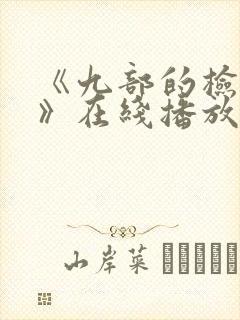 《九部的检
》在线播放
山岸菜